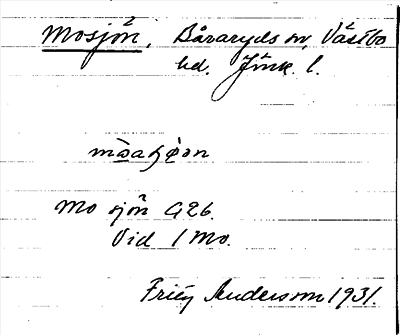 Mosjön, Båraryds sn, Västbo
hd. Jönk. l.
Mo sjön G26.
Vid 1 Mo.
Frig Andersson 1931.